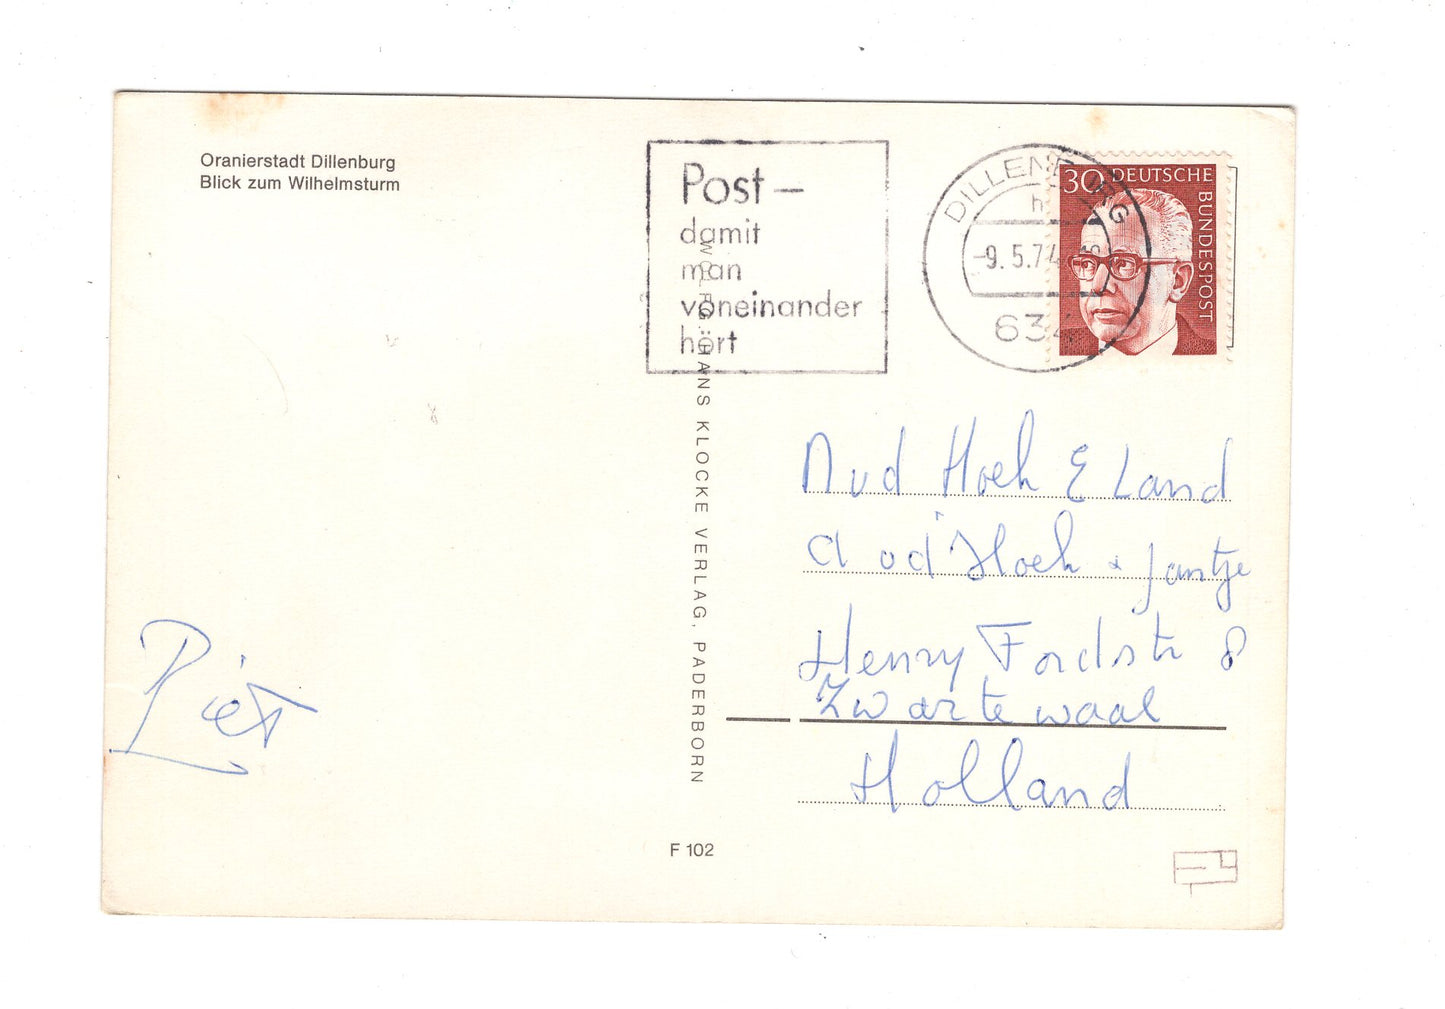 Oranierstadt Dillenburg
Blick zum Wilhelmsturm
Post –
damit
man
voneinander
hört
DILLENBURG
h
-9.5.74
634
30 DEUTSCHE
BUNDESPOST
HANS KLOCKE VERLAG, PADERBORN
vd Hoek & Land
A vd Hoek & Jantje
Henry Fordstr 8
Zwartewaal
Holland
Piet
F 102